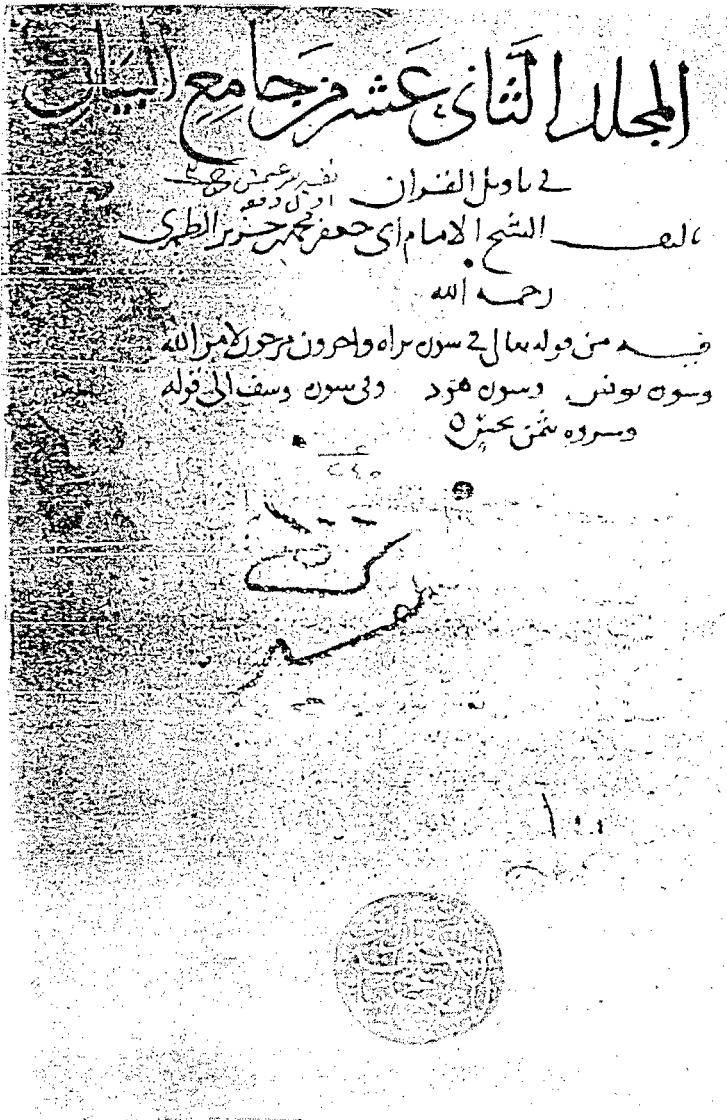 المجلد الثانى عشر من جامع البيان
فى تاويل القران
تاليف الشيخ الامام ابى جعفر محمد بن جرير الطبرى
رحمه الله
فيه من قوله تعالى فى سورة براه واخرون مرجون لامر الله
وسورة يونس وسورة هود وفى سورة يوسف الى قوله
وشروه بثمن بخس